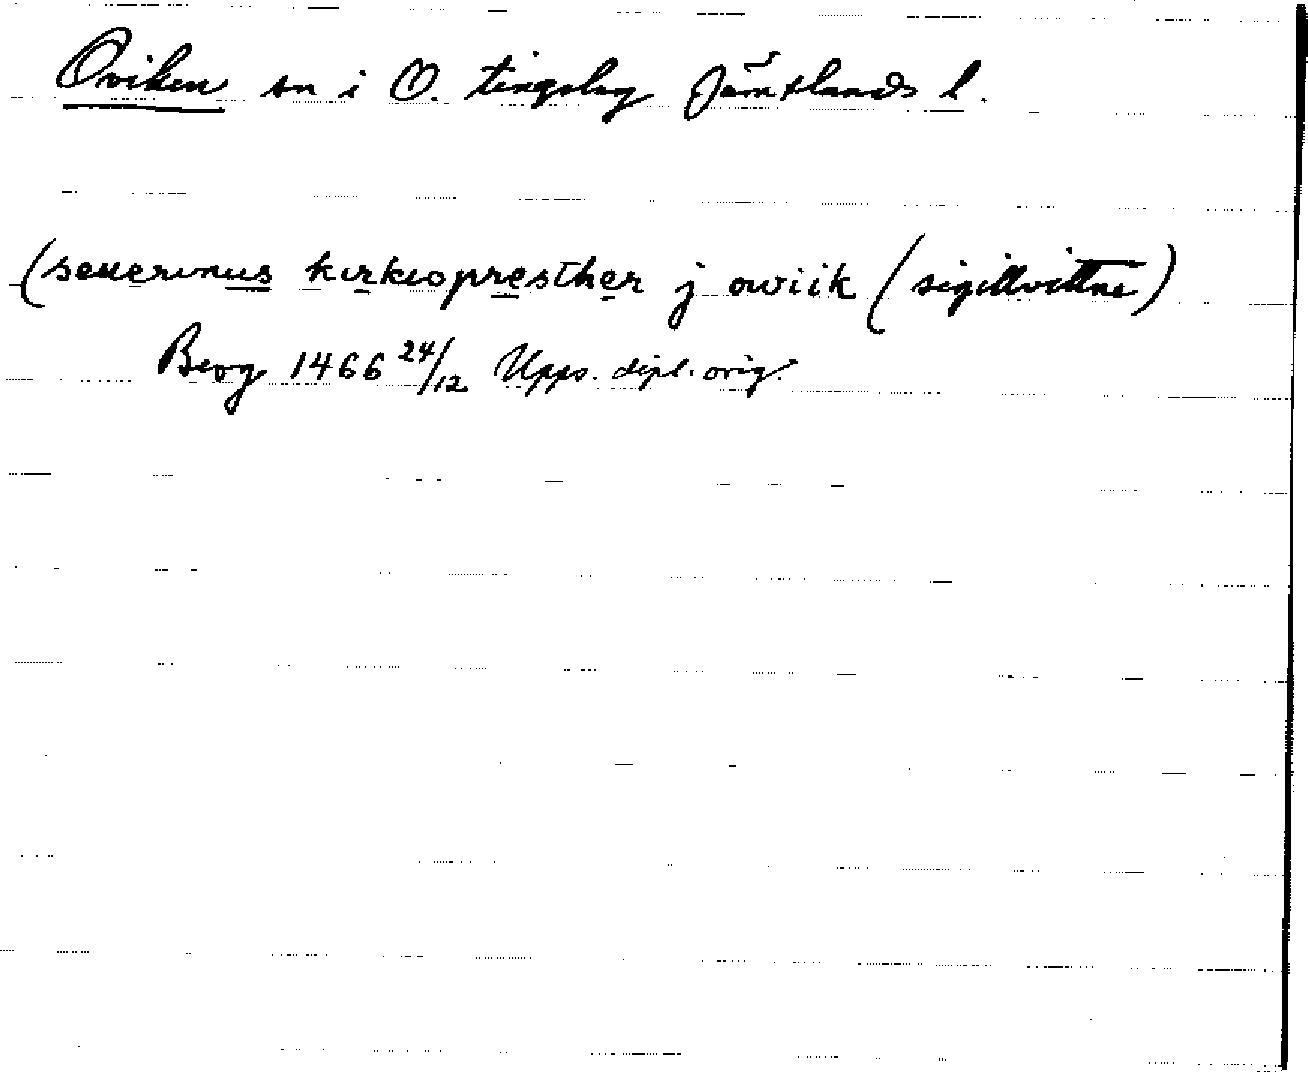 Oviken sn i O. tingslag Jämtlands l.
(seuerinus kirkiopresther j owiik (sigillvittne)
Berg 1466 24/12 Upps. dipl. orig.